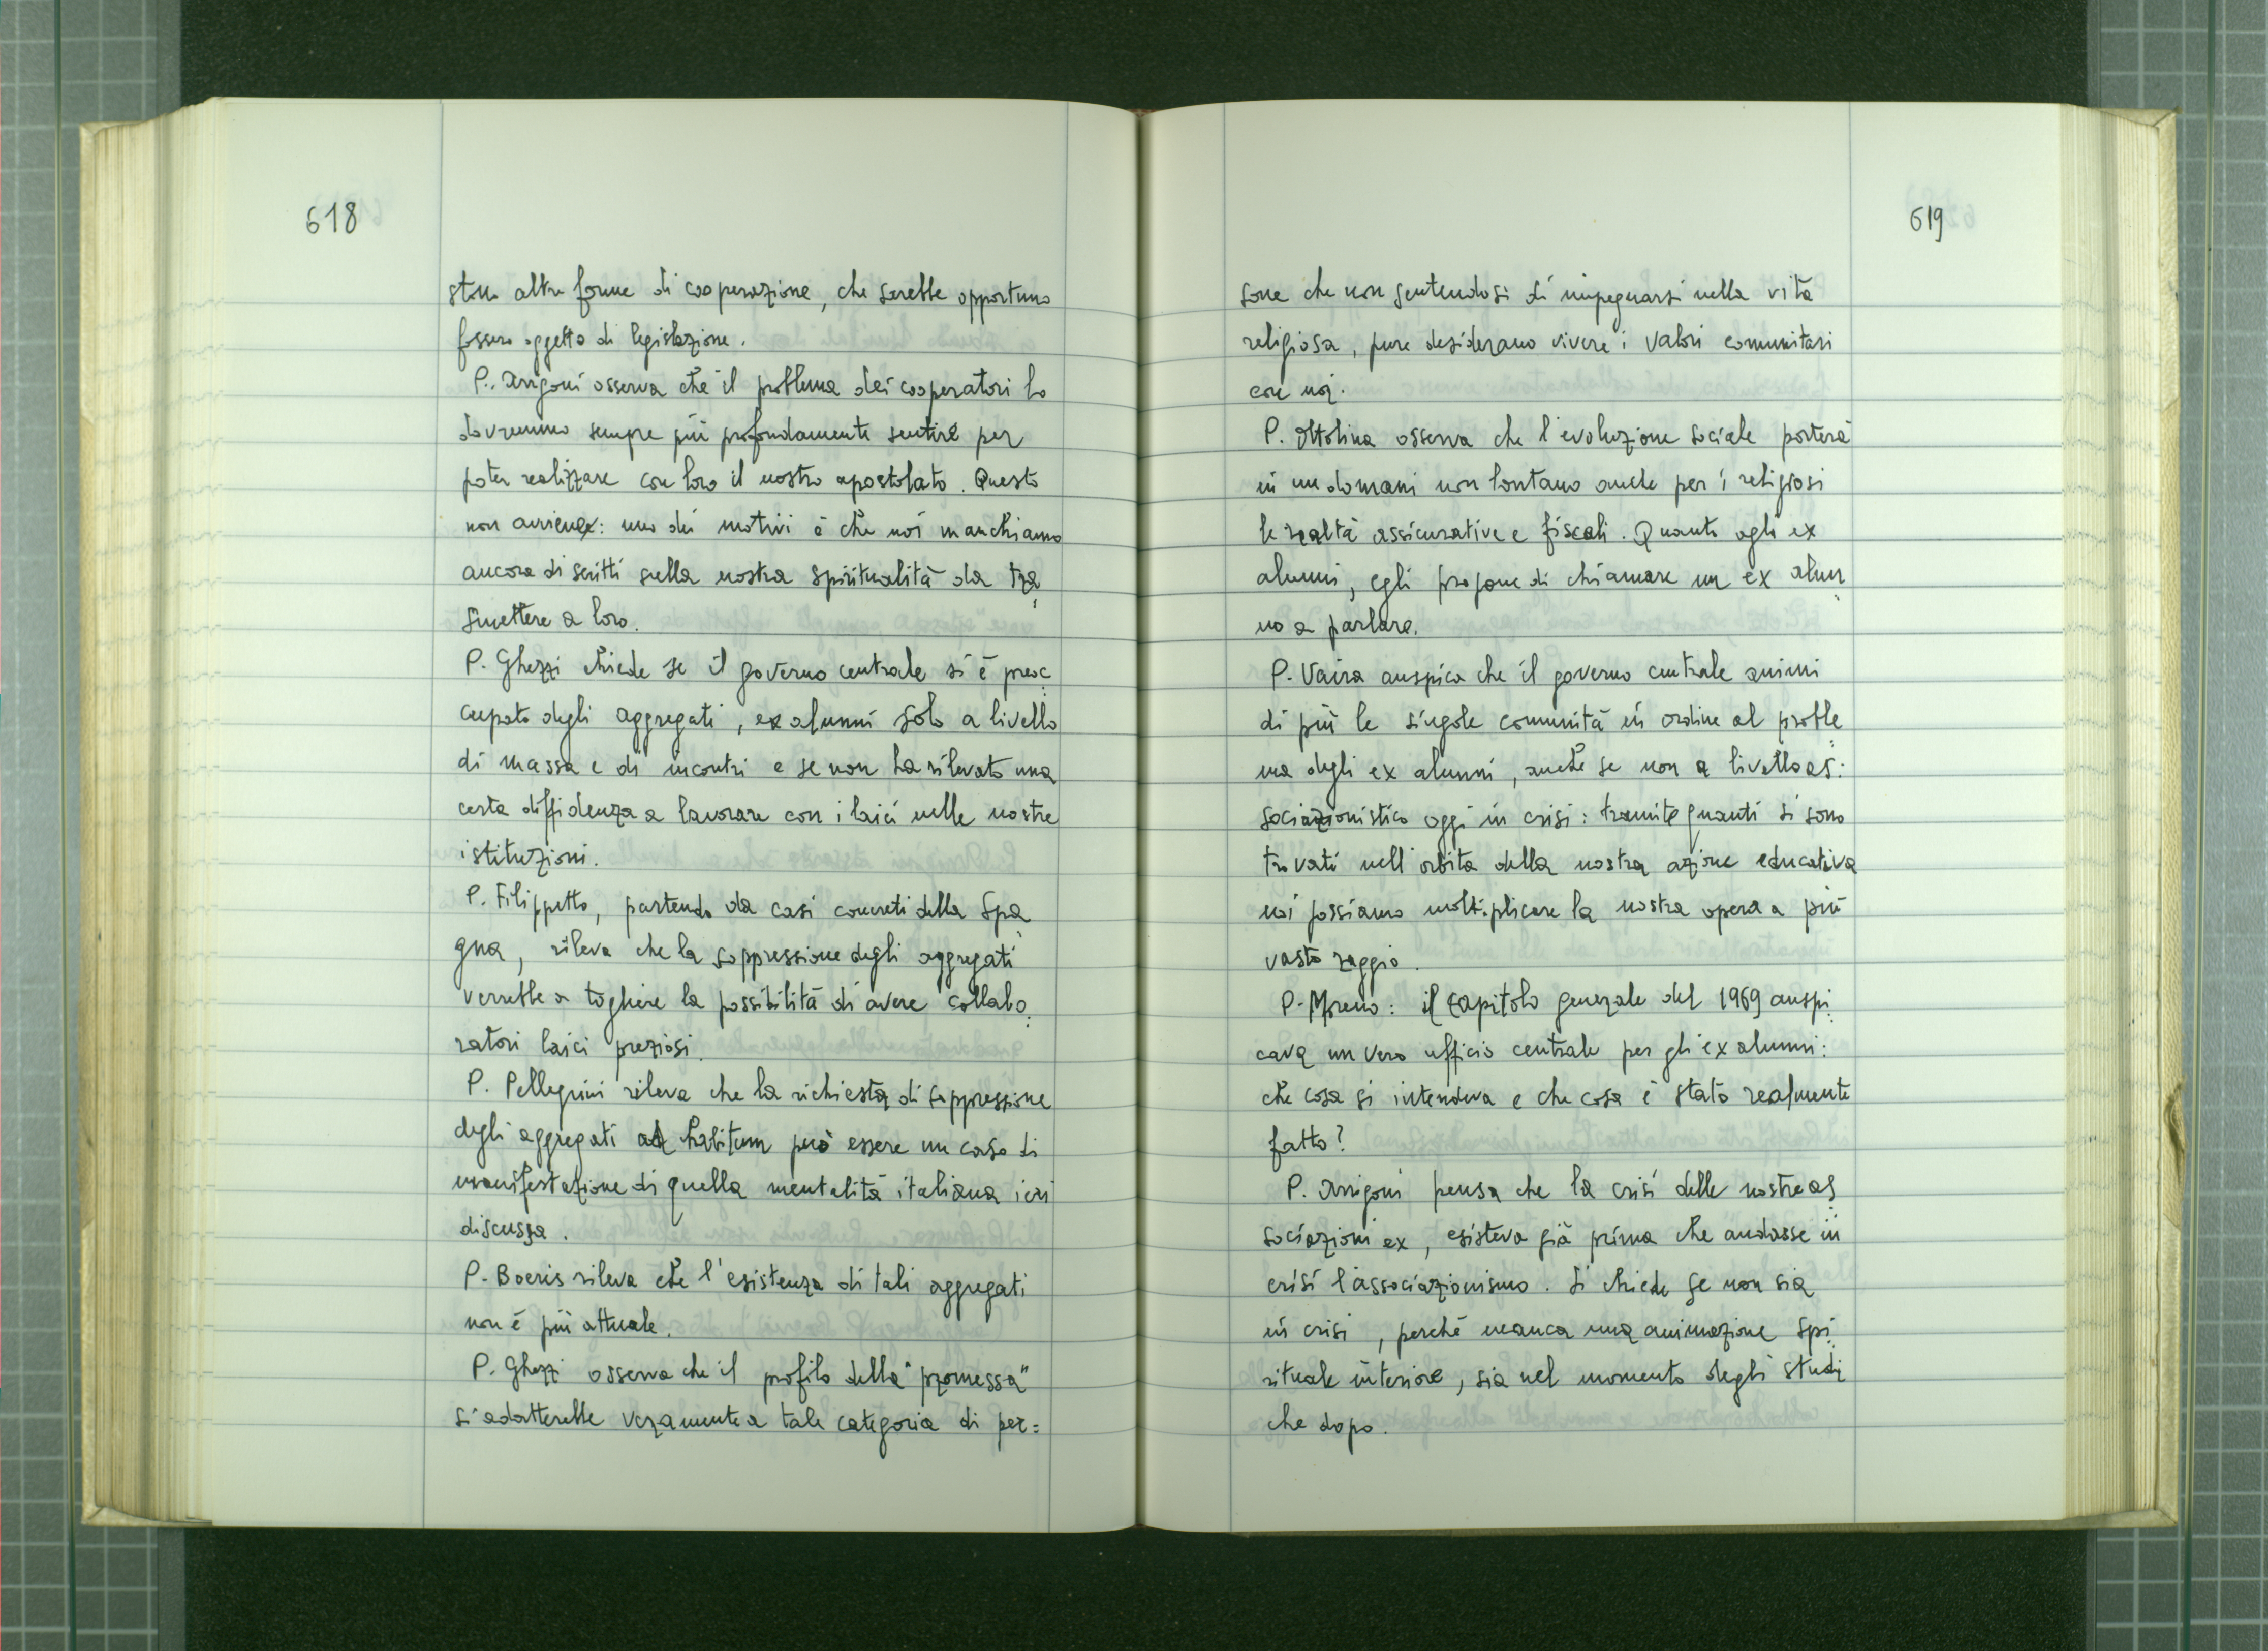 618
stono altre forme di cooperazione, che sarebbe opportuno
fossero oggetto di legislazione.
P. Arrigoni osserva che il problema dei cooperatori lo
dovremmo sempre più profondamente sentire per
poter realizzare con loro il nostro apostolato. Questo
non avviene: uno dei motivi è che noi manchiamo
ancora di scritti sulla nostra spiritualità da tra=
smettere a loro.
P. Ghezzi chiede se il governo centrale si è preoc=
cupato degli aggregati, ex alunni solo a livello
di massa e di incontri e se non ha rilevato una
certa diffidenza a lavorare con i laici nelle nostre
istituzioni.
P. Filippetto, partendo da casi concreti della Spa=
gna, rileva che la soppressione degli aggregati
verrebbe a togliere la possibilità di avere collabo=
ratori laici preziosi.
P. Pellegrini rileva che la richiesta di soppressione
degli aggregati ad habitum può essere un caso di
manifestazione di quella mentalità italiana ieri
discussa.
P. Boeris rileva che l'esistenza di tali aggregati
non è più attuale.
P. Ghezzi osserva che il profilo della "promessa"
si adatterebbe veramente a tale categoria di per=
619
sone che non sentendosi di impegnarsi nella vita
religiosa, pure desiderano vivere i valori comunitari
con noi.
P. Ottolina osserva che l'evoluzione sociale porterà
in un domani non lontano anche per i religiosi
le realtà assicurative e fiscali. Quanto agli ex
alunni, egli propone di chiamare un ex alun=
no a parlare.
P. Vaira auspica che il governo centrale animi
di più le singole comunità in ordine al proble=
ma degli ex alunni, anche se non a livello as=
sociazionistico oggi in crisi: tramite quanti si sono
trovati nell'orbita della nostra azione educativa
noi possiamo moltiplicare la nostra opera a più
vasto raggio.
P. Moreno: il capitolo generale del 1969 auspi=
cava un vero ufficio centrale per gli ex alunni:
che cosa si intendeva e che cosa è stato realmente
fatto?
P. Arrigoni pensa che la crisi delle nostre as=
sociazioni ex, esisteva già prima che andasse in
crisi l'associazionismo. Si chiede se non sia
in crisi, perché manca una animazione spi=
rituale interiore, sia nel momento degli studi
che dopo.